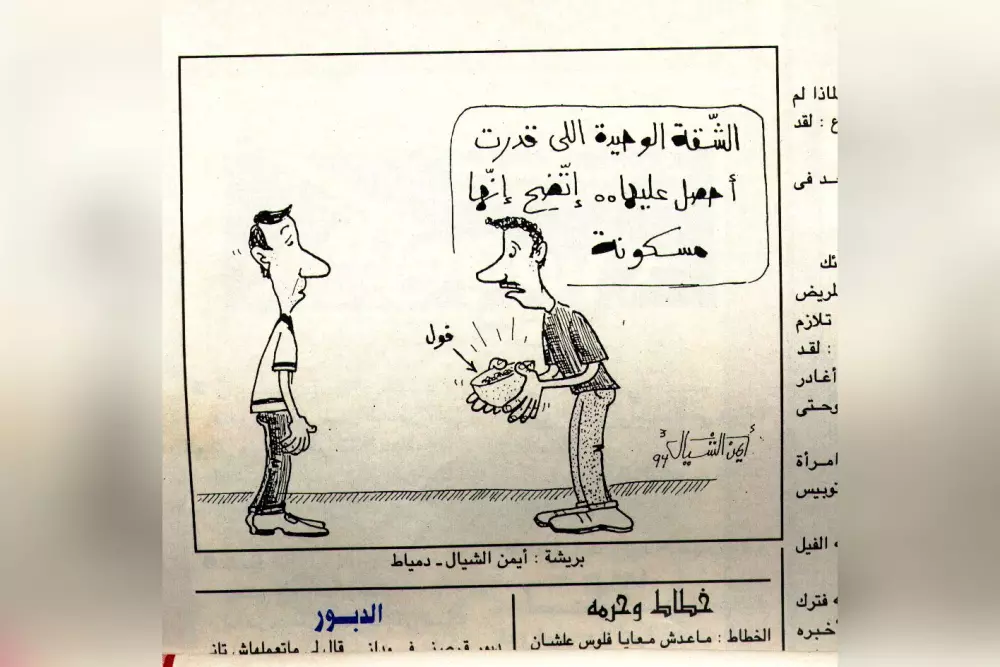 الشّقة الوحيدة اللى قدرت
أحصل عليها.. إتّضح إنّها
مسكونة
فول
أيمن الشيال
٩٤
بريشة : أيمن الشيال ـ دمياط
خطاط وحرمه
الخطاط : ماعدش معايا فلوس علشان
الدبور
لماذا لم
ع : لقد
ـد فى
ئك
لمريض
تلازم
: لقد
أغادر
وحتى
امرأة
توبيس
الفيل
فترك